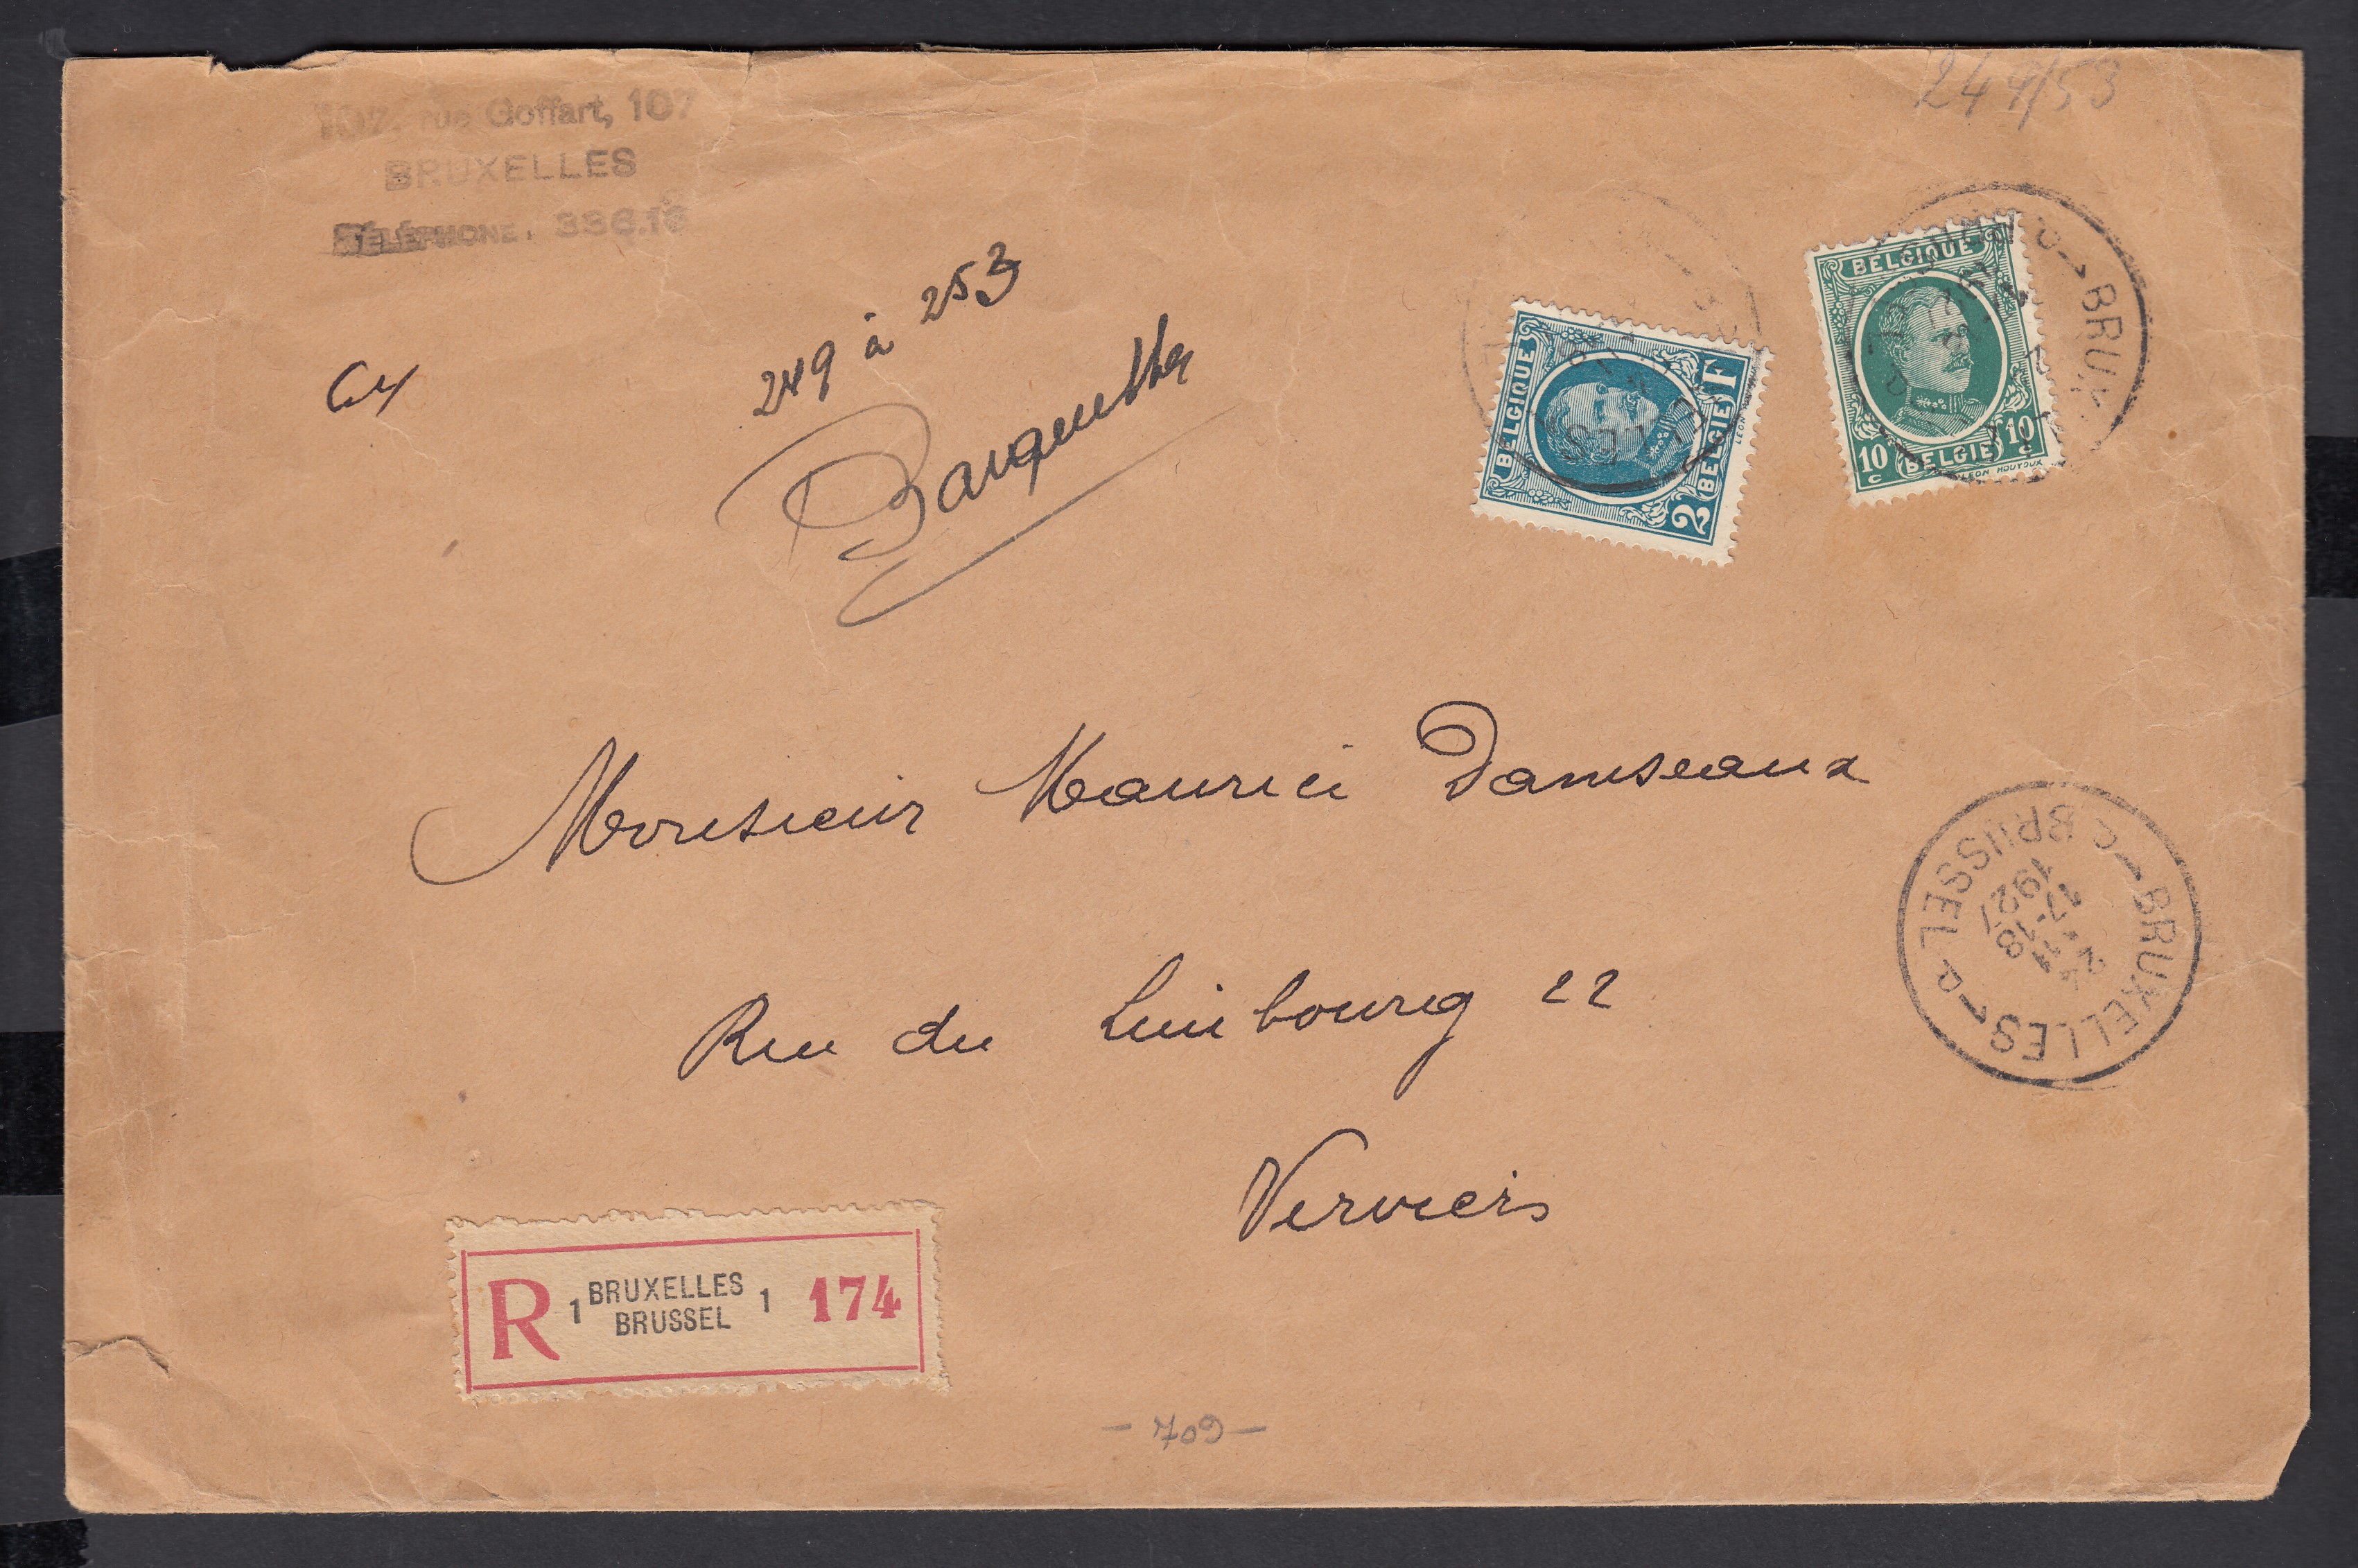 107, rue Goffart, 107
BRUXELLES
TÉLÉPHONE. 336.16
249/53
249 à 253
BELGIQUE
2 F
BELGIE
BELGIQUE
10 c BELGIE 10 c
LEON HOUYOUX
Monsieur Maurice Damseaux
Rue du Limbourg 22
Verviers
1 BRUXELLES 1
24 11
17-18
1927
C BRUSSEL
R 1 BRUXELLES BRUSSEL 1 174
- 709 -